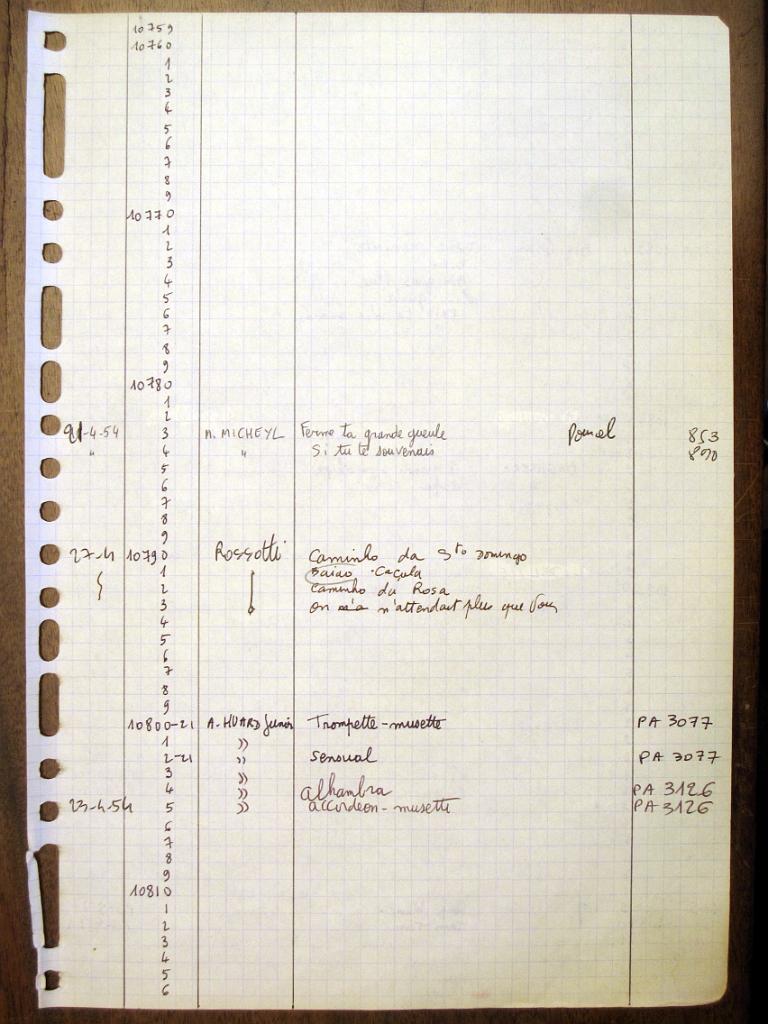 10759
10760
1
2
3
4
5
6
7
8
9
10770
1
2
3
4
5
6
7
8
9
10780
1
2
21-4-54 3 M. MICHEYL Ferme ta grande gueule 853
" 4 " Si tu te souvenais 890
5
6
7
8
9
27-4 10790 Rossotti Caminho da Sto Domingo
1 Baiao Caçula
2 Caminho da Rosa
3 on n'attendait plus que vous
4
5
6
7
8
9
10800-21 A. HUARD Junior Trompette-musette PA 3077
1 "
2-21 " Sensual PA 3077
3 "
4 " alhambra PA 3126
23-4-54 5 " accordeon-musette PA 3126
6
7
8
9
10810
1
2
3
4
5
6